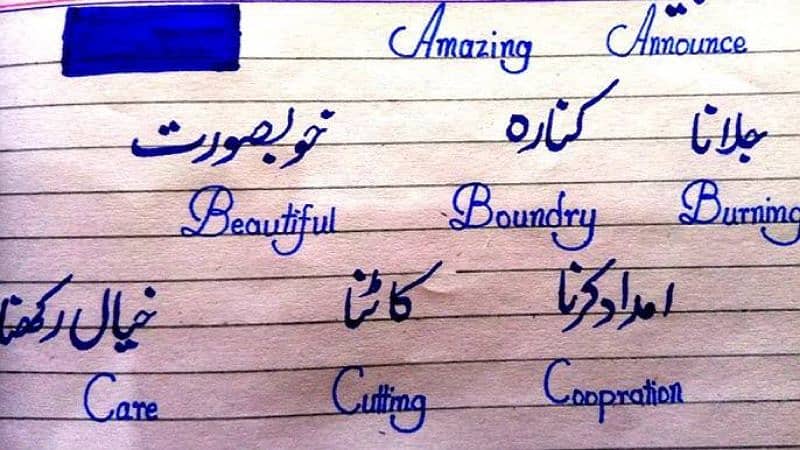 Amazing Announce
خوبصورت کنارہ جلانا
Beautiful Boundry Burning
خیال رکھنا کاٹنا امداد کرنا
Care Cutting Coopration